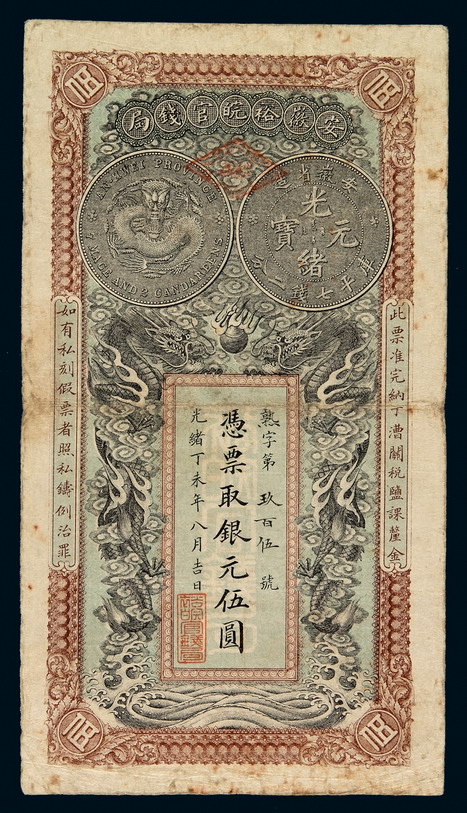 安徽裕皖官錢局
AN HWEI PROVINCE
7 MACE AND 2 CANDAREENS
安徽省造
光緒元寶
庫平七錢
此票准完納丁漕關稅鹽課釐金
熟字第玖百伍號
憑票取銀元伍圓
光緒丁未年八月吉日
如有私刻假票者照私鑄例治罪